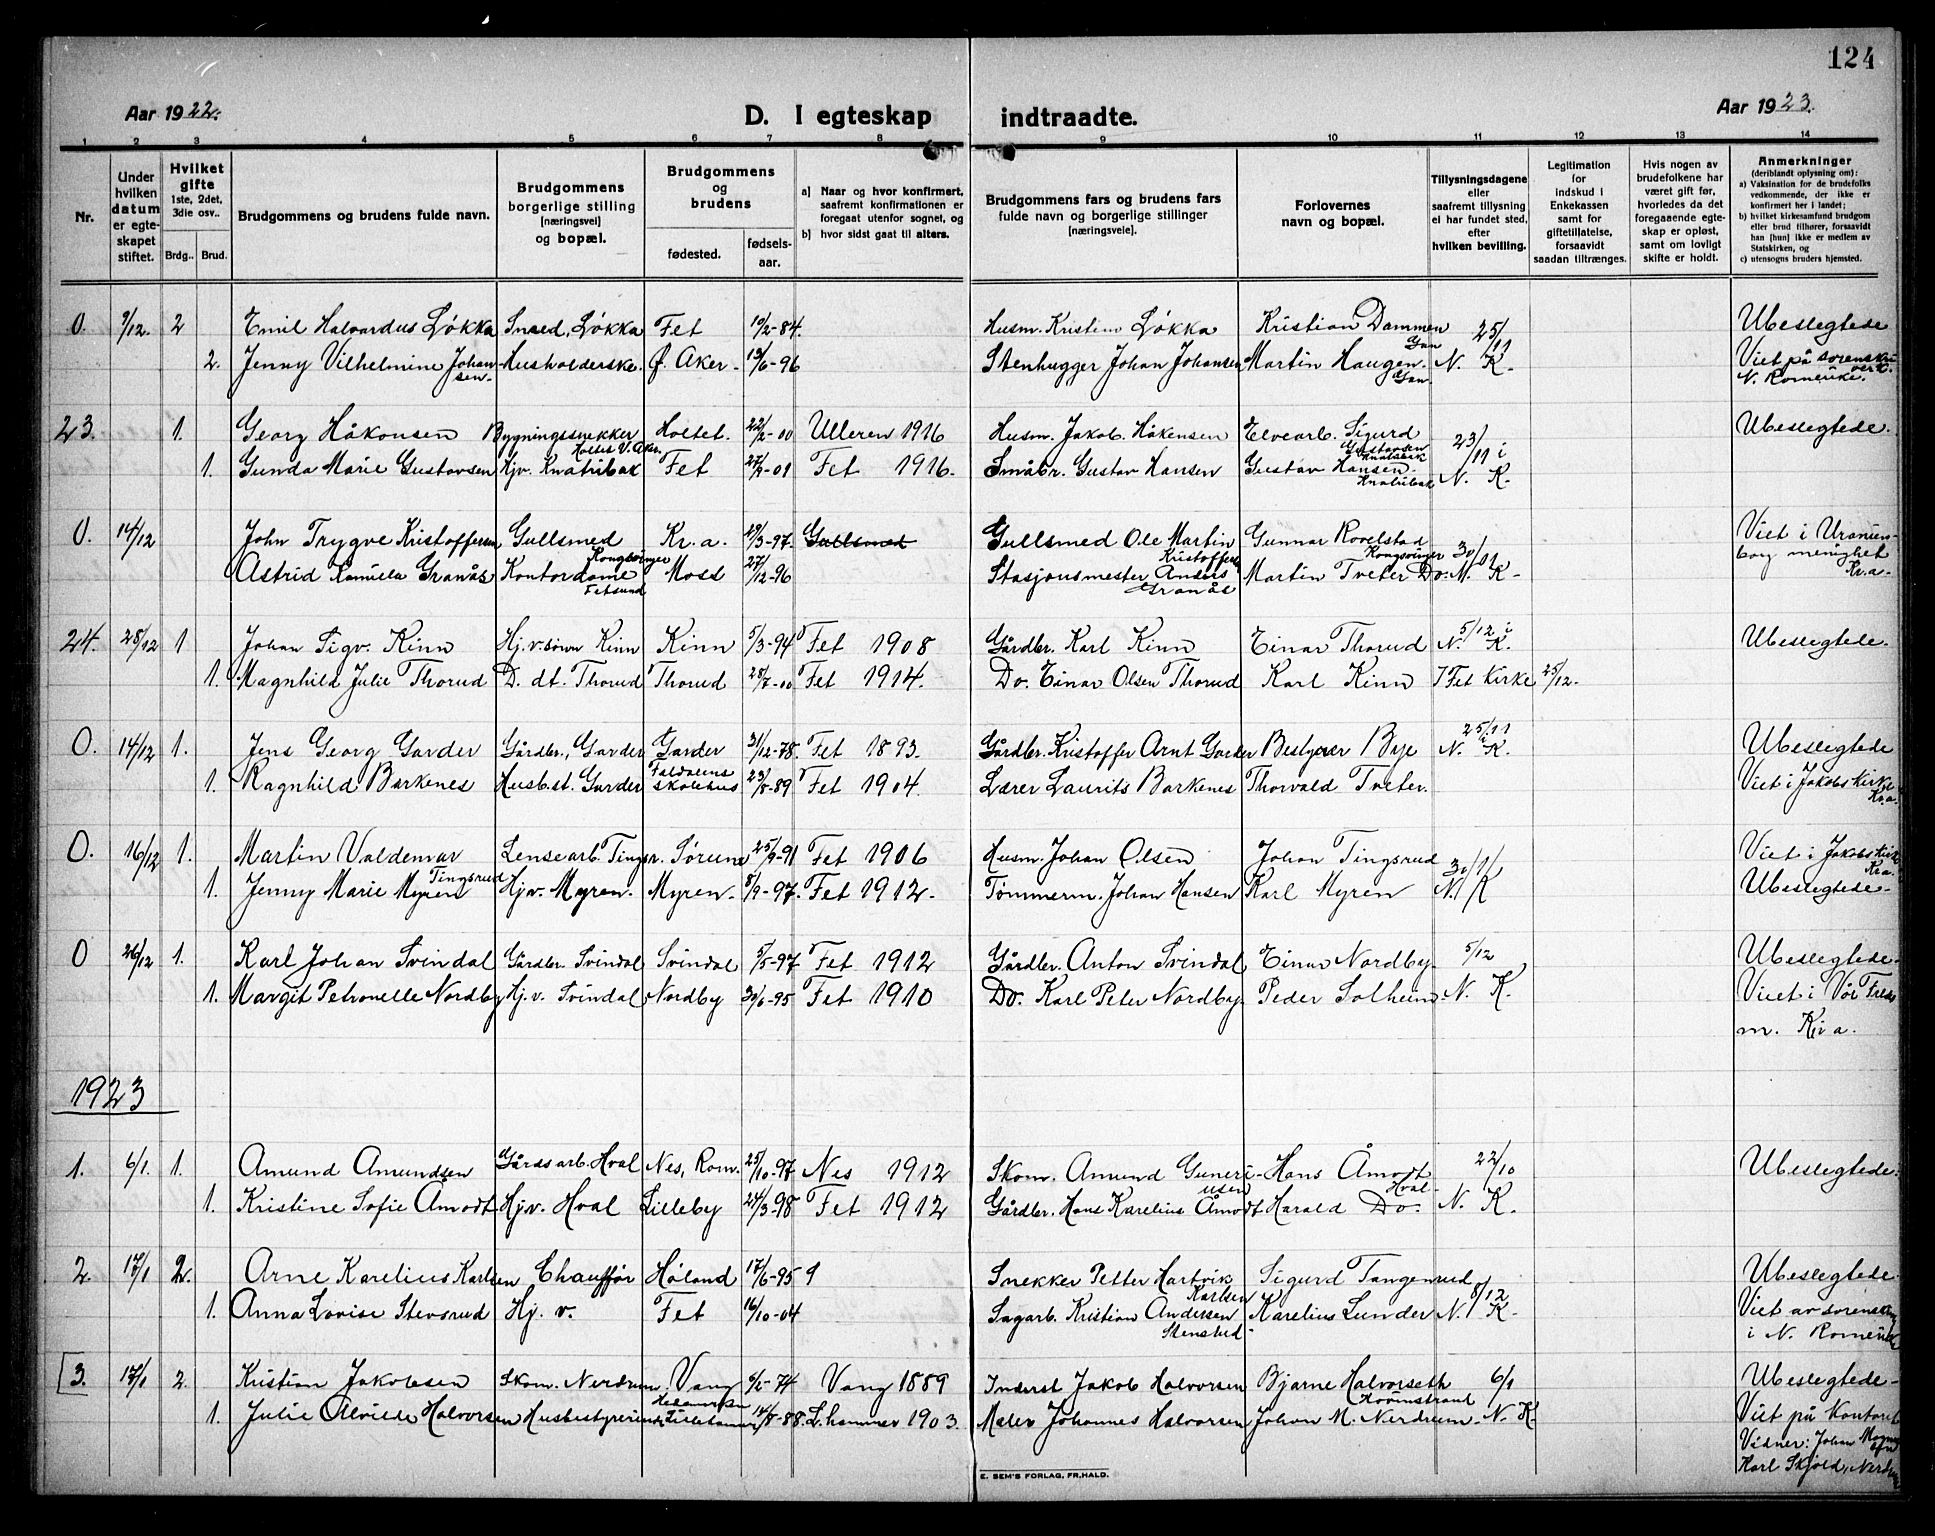 124
Aar 1922. D. I egteskap indtraadte. Aar 1923.
1 2 3 4 5 6 7 8 9 10 11 12 13 14
Nr.
Under hvilken datum er egteskapet stiftet.
Hvilket gifte 1ste, 2det, 3die osv..
Brdg.. Brud.
Brudgommens og brudens fulde navn.
Brudgommens borgerlige stilling [næringsvei] og bopæl.
Brudgommens og brudens
fødested. fødselsaar.
a] Naar og hvor konfirmert, saafremt konfirmationen er foregaat utenfor sognet, og
b] hvor sidst gaat til alters.
Brudgommens fars og brudens fars fulde navn og borgerlige stillinger [næringsveie].
Forlovernes navn og bopæl.
Tillysningsdagene eller saafremt tillysning ei har fundet sted, efter hvilken bevilling.
Legitimation for indskud i Enkekassen samt for giftetillatelse, forsaavidt saadan tiltrænges.
Hvis nogen av brudefolkene har været gift før, hvorledes da det foregaaende egteskap er opløst, samt om lovligt skifte er holdt.
Anmerkninger (deriblandt oplysning om):
a) Vaksination for de brudefolks vedkommende, der ikke er konfirmert her i landet;
b) hvilket kirkesamfund brudgom eller brud tilhører, forsaavidt han [hun] ikke er medlem av Statskirken, og
c) utensogns bruders hjemsted.
0. 9/12. 2 Emil Halvardus Løkka Smed, Løkka Fet 10/2-84. Husm. Kristian Løkka Kristian Dammen Gan 25/11 Ubeslegtede
2. Jenny Vilhelmine Johansen Husholderske. Ø. Aker 19/6-96 Stenhugger Johan Johansen Martin Haugen. Gan. N. K. Viet på
N. Romerike.
23. 1. Georg Håkonsen Bygningssnekker Holtet V. Aker. Holtet. 22/2-00 Ulleren 1916 Husm. Jakob Håkensen Elvearb. Sigurd Gustavsen Knatribak 23/11 i Ubeslegtede.
1. Gunda Marie Gustavsen Hjv. Knatribak Fet 01 Fet 1916. Småbr. Gustav Hansen Gustav Hansen. Knatribak N. K.
0. 14/12 John Trygve Kristoffersen Gullsmed Kongsvinger Kr.a. 29/3-97. Gullsmed Gullsmed Ole Martin Kristoffersen Gunnar Rovelstad Kongsvinger 30/11 Viet i Uranienborg menighet Kr.a.
Astrid Kamilla Granås Kontordame Fetsund Moss 27/12-96 Stasjonsmester Anders Granås Martin Tveter Do. N. K.
24. 28/12 1 Johan Sigv. Kinn Hj.v. sønn Kinn Kinn 5/3-94 Fet 1908 Gårdbr. Karl Kinn Einar Thorud 5/12 i N. K. Ubeslegtede.
1. Magnhild Julie Thorud D. dt. Thorud Thorud 28/7-00 Fet 1914. Do. Einar Olsen Thorud Karl Kinn I Fet Kirke 25/12.
0. 14/12 1. Jens Georg Garder Gårdbr., Garder Garder 31/12-78. Fet 1893. Gårdbr. Kristoffer Arnt Garder Bestyrer Bøje 25/11 N. K. Ubeslegtede
1. Ragnhild Barkenes Husb.st. Garder Faldalens skolehus 23/8-89 Fet 1904. Lærer Laurits Barkenes Thorvald Tveter. Viet i Jakobs Kirke Kr.a.
0. 16/12 1. Martin Valdemar Tingsrud Lensearb. Tingsr. Sørum 25/9-91 Fet 1906 Husm. Johan Olsen Johan Tingsrud 30/11 Viet i Jakobs Kirke Kr.a.
1. Jenny Marie Myren Hjv. Myren. Myren. 8/9-97. Fet 1912. Tømmerm. Johan Hansen Karl Myren N. K Ubeslegtede.
0 26/12 1. Karl Johan Svindal Gårdbr. Svindal Svindal 5/5-97 Fet 1912 Gårdbr. Anton Svindal Einar Nordby 5/12 Ubeslegtede.
1. Margit Petronelle Nordby Hj.v. Svindal Nordby 30/6-95 Fet 1910 Do. Karl Peter Nordby Peder Solheim. N. K. Viet i Vår Frels
m. Kr a.
1923
1. 6/1. 1. Amund Amundsen Gårdsarb. Hval Nes, Rom. 25/10-97 Nes 1912 Skom. Amund Guneriusen Hans Åmodt Hval 22/10 Ubeslegtede.
1. Kristine Sofie Åmodt Hjv. Hval Lilleby 24/3-98 Fet 1912 Gårdbr. Hans Karelius Åmodt Harald Do. N. K.
2. 17/1 2. Arne Karelius Karlsen Chauffør Høland 17/6-95 9 Snekker Petter Hartvik Karlsen Sigurd Tangenrud 8/12 Ubeslegtede.
1. Anna Lovise Stensrud Hj. v. Fet 16/10-04 Sagarb. Kristian Andersen Stenstud Karelius Lunder N. K. Viet av
i N. Romerike
[3. 17/1 2. Kristian Jakobsen Skom. Nerdrum Vang Hedemarken 6/6-74 Vang 1889 Inderst Jakob Halvorsen Bjarne Halvorseth 6/1 Ubeslegtede.
1. Julie Alvilde Halvorsen Husbestyrerinde Lillehammer 14/8-88. L.hammer 1903. Maler Johannes Halvorsen Johan M. Nerdrum. N. K. Viet på Kontoret
Vidner: Johan
Karl Skjold, Nerdrum
E. SEM'S FORLAG, FR.HALD.